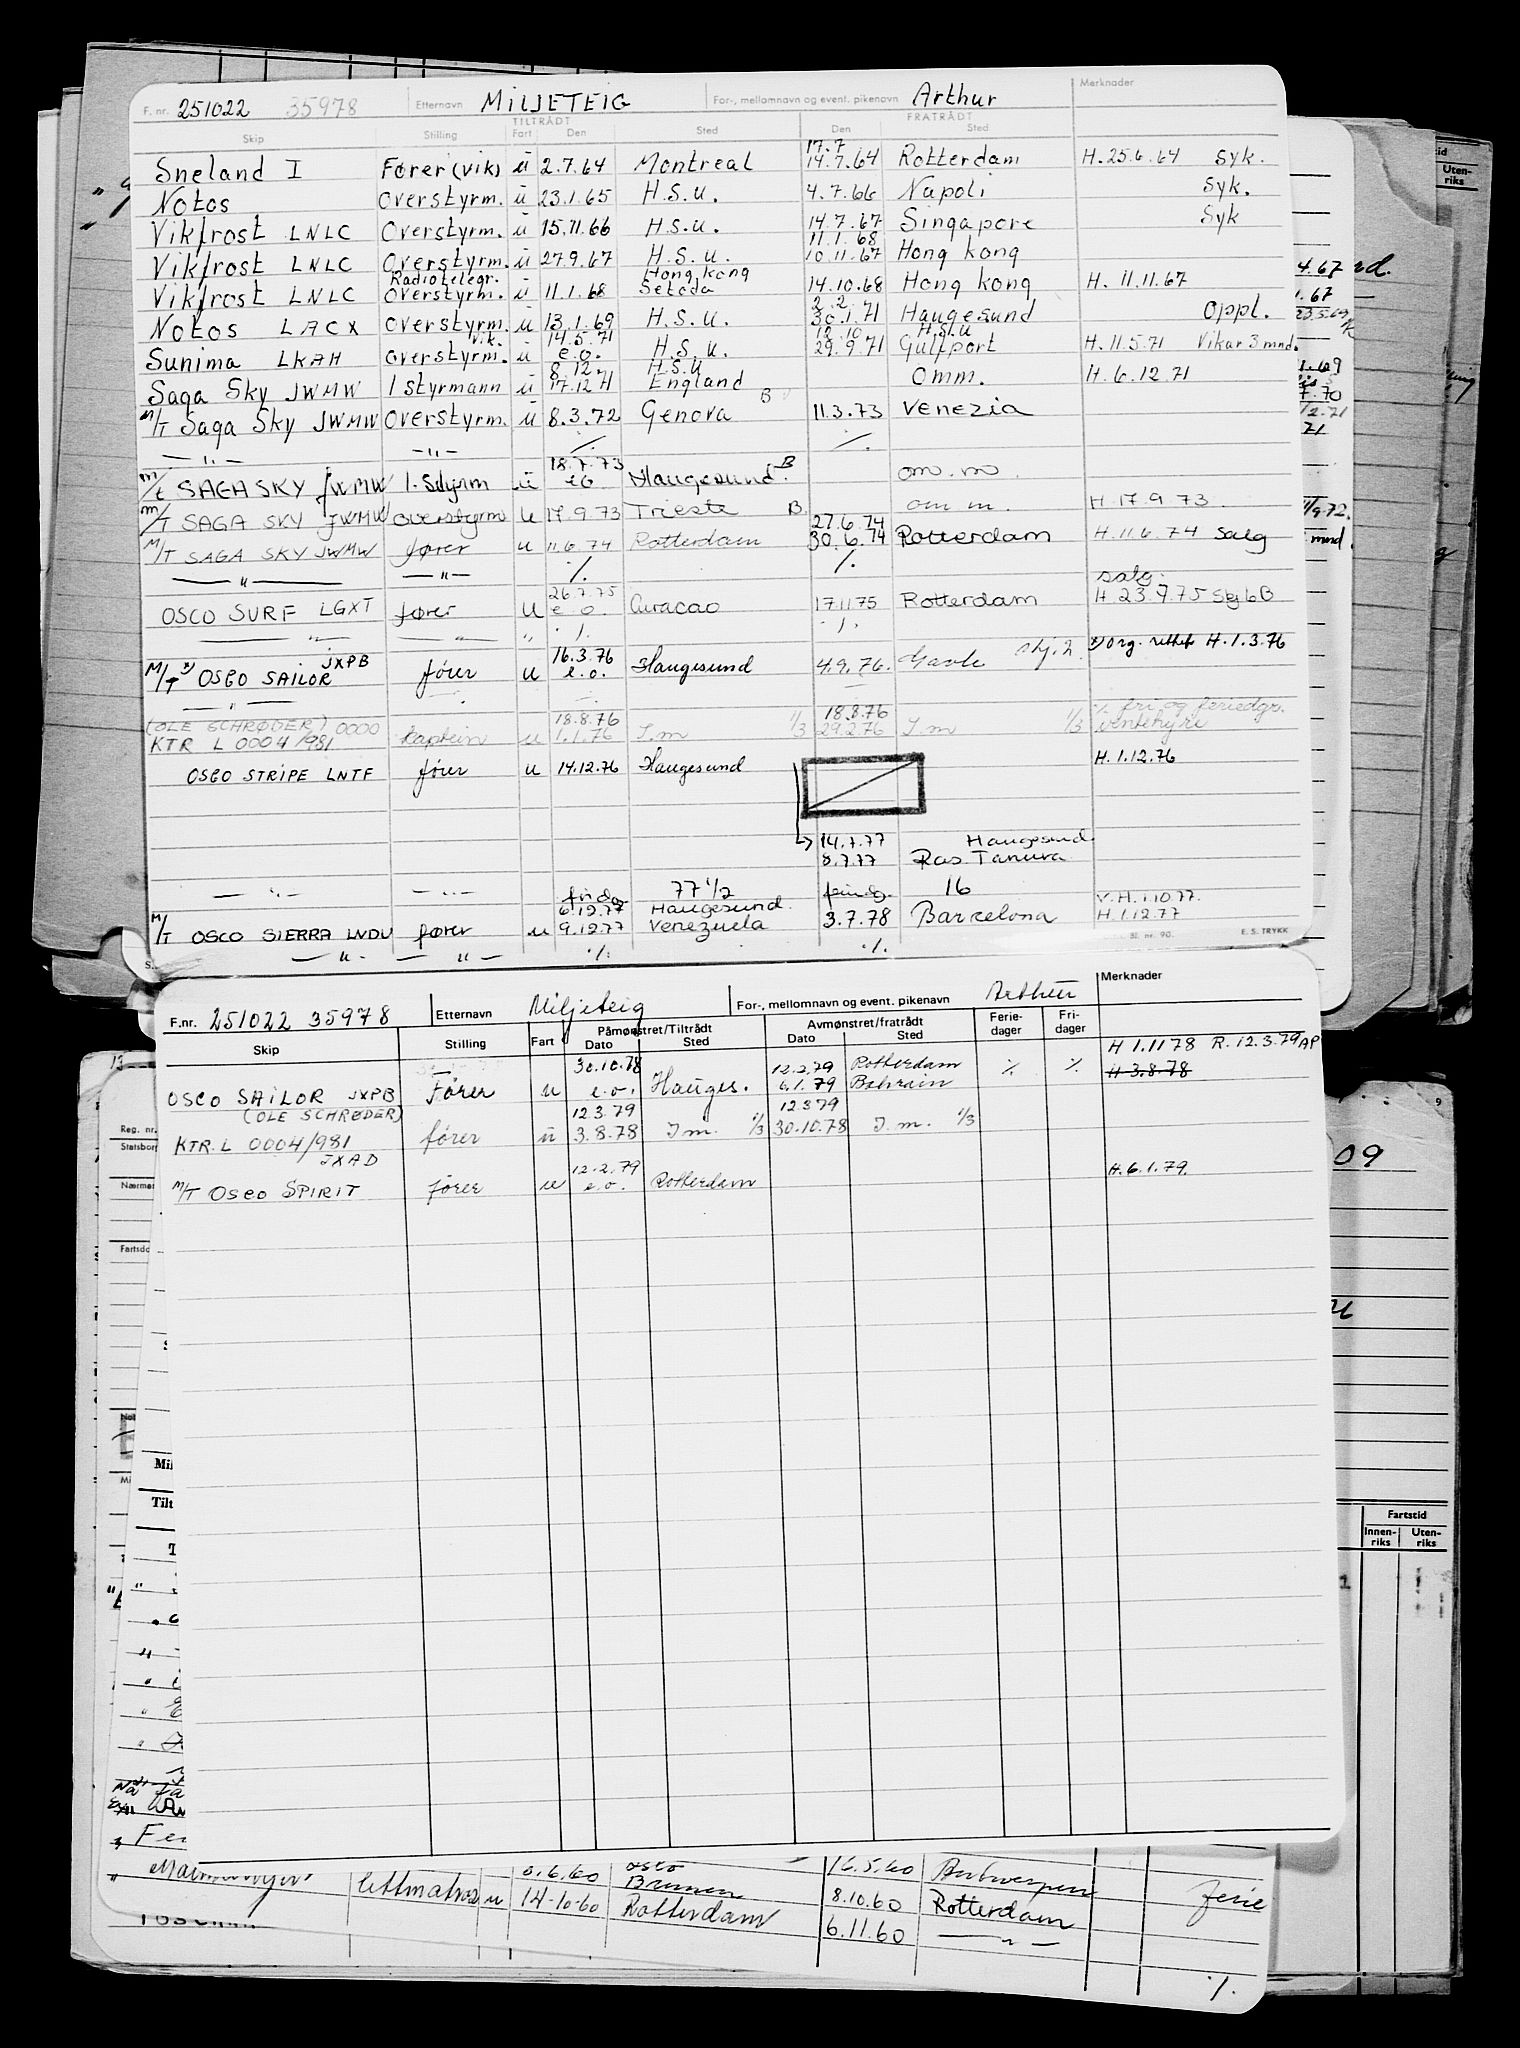 F. nr. 251022 35978 Etternavn MILJETEIG For-, mellomnavn og event. pikenavn Arthur Merknader
TILTRÅDT FRATRÅDT
Skip Stilling Fart Den Sted Den Sted
17.7
Sneland I Fører (vik) ü 2.7.64 Montreal 14.7.64 Rotterdam H. 25.6.64 Syk.
Notos Overstyrm. ü 23.1.65 H.S.U. 4.7.66 Napoli Syk.
Vikfrost LNLC Overstyrm. ü 15.11.66 H.S.U. 14.7.67 Singapore Syk
11.1.68
Vikfrost LNLC Overstyrm. ü 27.9.67 H.S.U. 10.11.67 Hong kong
Radiotelegr. Hong kong
Vikfrost LNLC Overstyrm. ü 11.1.68 Setoda 14.10.68 Hong kong H. 11.11.67
2.2.71
Notos LACX Overstyrm. ü 13.1.69 H.S.U. 30.1.71 Haugesund Oppl.
vik. 14.5.71 12.10 H.S.U
Sunima LKAH Overstyrm. ü e.o. H.S.U. 29.9.71 Gulfport H. 11.5.71 Vikar 3 mnd.
8.12 H.S.U
Saga Sky JWMW 1 styrmann ü 17.12.71 England Omm. H. 6.12.71
B
M/T Saga Sky JWMW Overstyrm. ü 8.3.72 Genova 11.3.73 Venezia
— " — — " — ./. ./.
18.7.73 B
M/t SAGA SKY JWMW 1. Styrm ü eo Haugesund. om. m.
M/T SAGA SKY JWMW overstyrm u 17.9.73 Trieste B. om m. H. 17.9.73.
27.6.74
M/T SAGA SKY JWMW fører u 11.6.74 Rotterdam 30.6.74 Rotterdam H. 11.6.74 Salg
— " — — " — ./. ./.
26.7.75 salg.
OSCO SURF LGXT fører u e.o. Curacao 17.11.75 Rotterdam H 23.7.75 Stj 6 B
— " — — " — " ./. ./.
JXPB 16.3.76
M/T OSCO SAILOR fører u e.o. Haugesund 4.9.76. Gavle stj. 2 org. rettet H. 1.3.76
— " —
(OLE SCHRØDER) 0000 18.8.76 18.8.76 ./. fri og feriedgr.
KTR L 0004/981 kaptein u 1.1.76 I.m 1/3 29.2.76 I m 1/3 ventehyre
OSCO STRIPE LNTF fører u 14.12.76 Haugesund H. 1.12.76
14.7.77 Haugesund.
8.7.77 Ras Tanura
— " — — " — 77 1/2 16
6.12.77 Haugesund. V.H. 1.10.77.
M/T OSCO SIERRA LNDU fører u 9.12.77 Venezuela 3.7.78 Barcelona H. 1.12.77
— " — — " — ./. ./.
Bl. nr. 90. E. S. TRYKK
F.nr. 251022 35978 Etternavn Miljeteig For-, mellomnavn og event. pikenavn Arthur Merknader
Påmønstret/Tiltrådt Avmønstret/fratrådt Ferie- dager Fri- dager
Skip Stilling Fart Dato Sted Dato Sted
H 1.11 78 R. 12.3.79 AP
30.10.78 12.2.79 Rotterdam ./. ./. H 3.8.78
OSCO SAILOR JXPB Fører u e.o. Hauges. 6.1.79 Bahrain
(OLE SCHRØDER) 12 3.79 12 3 79
KTR. L 0004/981 fører ü 3.8.78 I m. 1/3 30.10.78 I. m. 1/3
JXAD 12.2.79 H. 6.1.79.
M/T OSCO SPIRIT fører u e.o. Rotterdam
Fartstid
Innen- riks Uten- riks
Reg. nr.
09
oslo 16.5.60 Antwerpen
lettmatros u 6.6.60 Bremen 8.10.60 Rotterdam Ferie
14-10-60 Rotterdam 6.11.60 — " —
./.